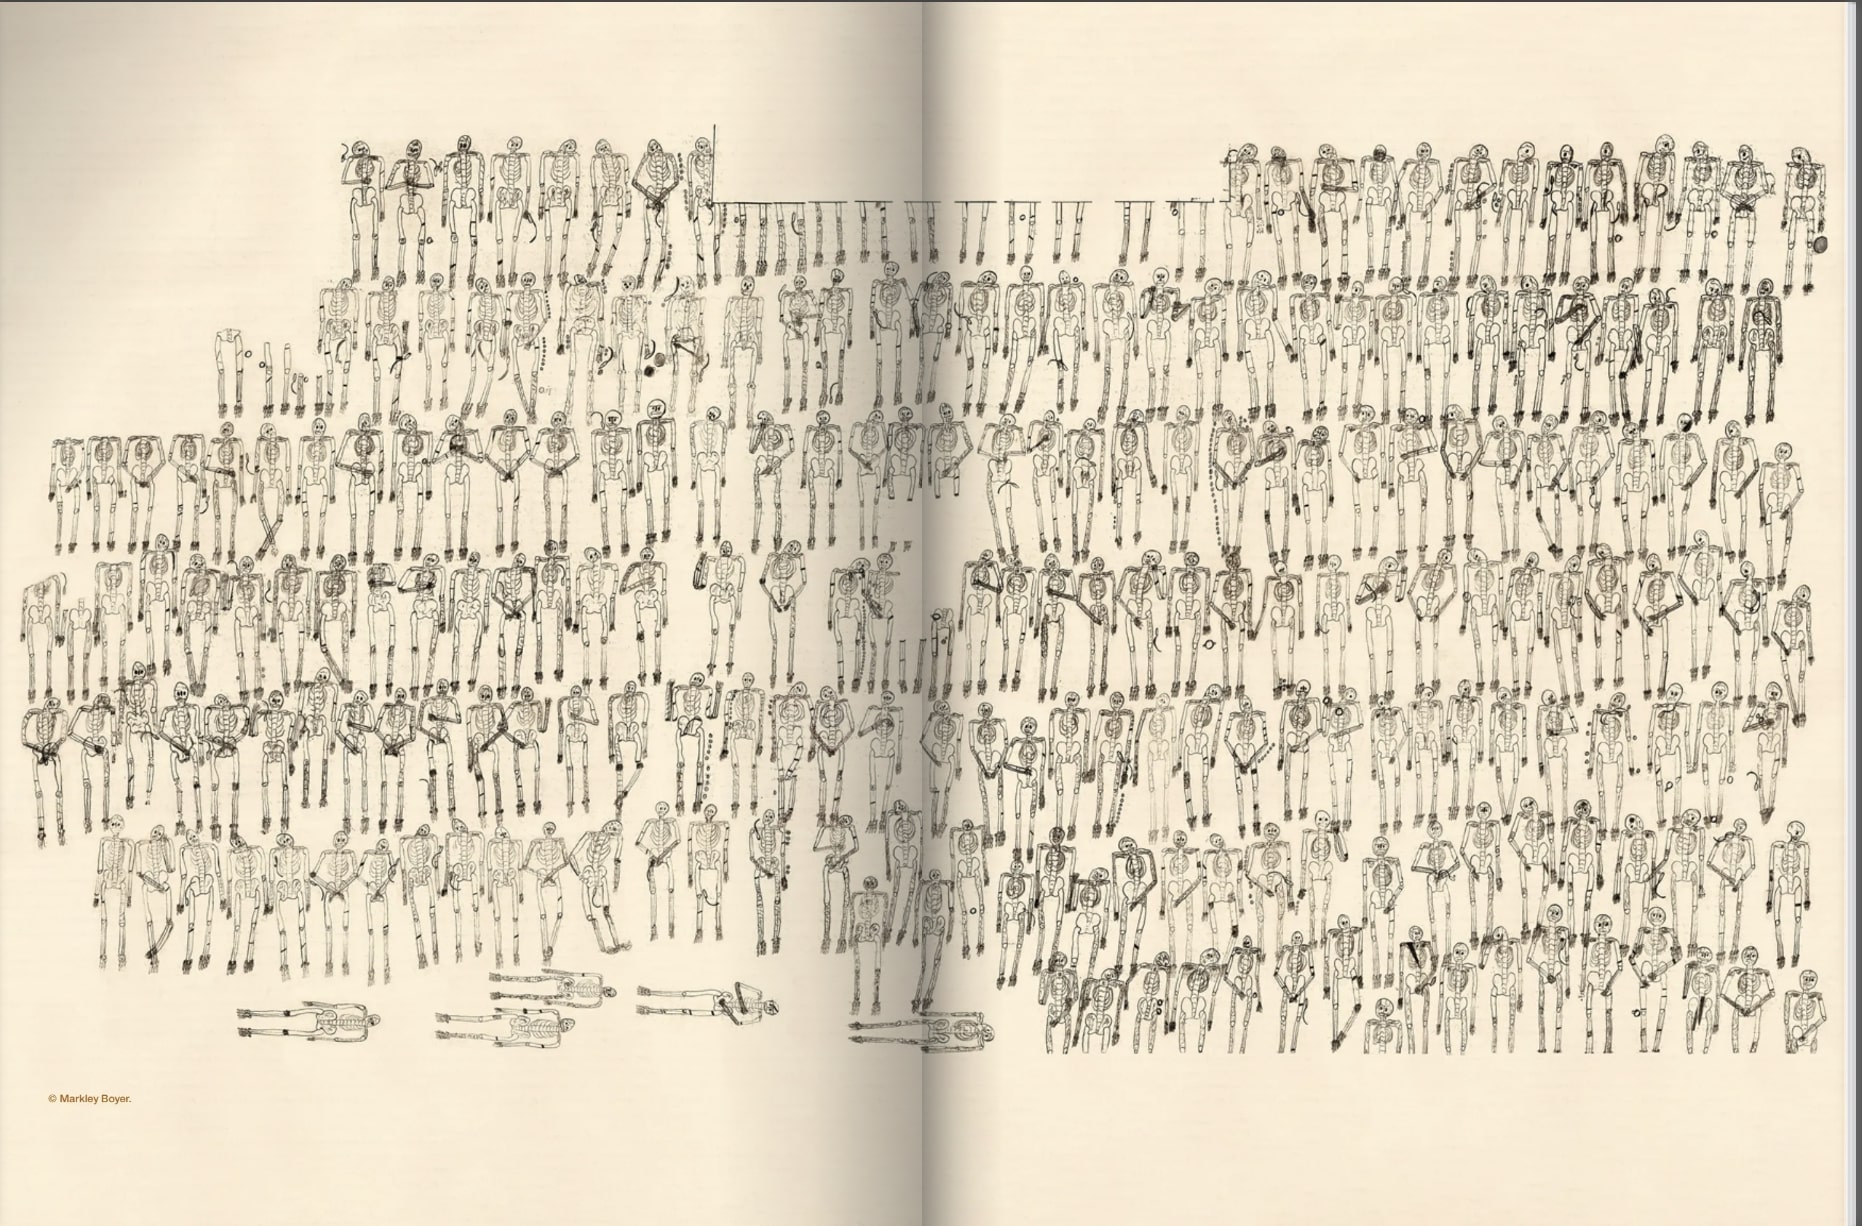 © Markley Boyer.